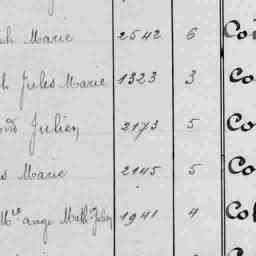 Marie 2542 6 Co
Jules Marie 1323 3 Co
Julien 2173 5 Co
Marie 2145 5 Co
ange Math. Julien 1941 4 Co